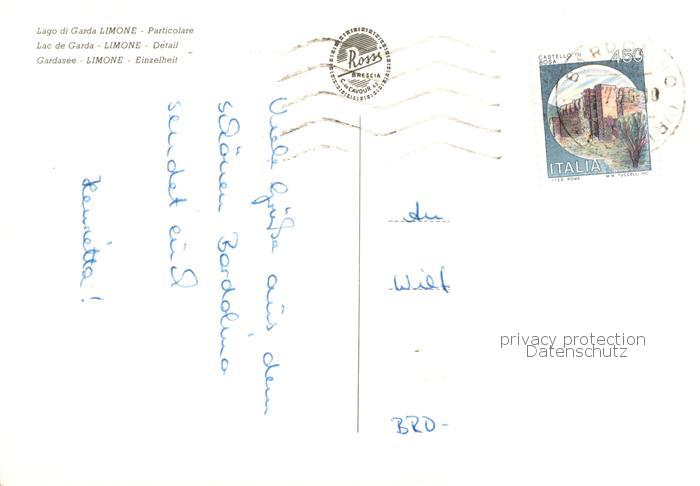 Lago di Garda LIMONE - Particolare
Lac de Garda - LIMONE - Détail
Gardasee - LIMONE - Einzelheit
Rossi
BRESCIA
C. so CAVOUR 42
CASTELLO DI
BOSA
450
ITALIA
I.P.Z.S. ROMA
M.M. TUCCELLI INC.
Viele Grüße aus dem
schönen Bardolino
sendet euch
Henrietta!
An
Wilf
BRD-
privacy protection
Datenschutz